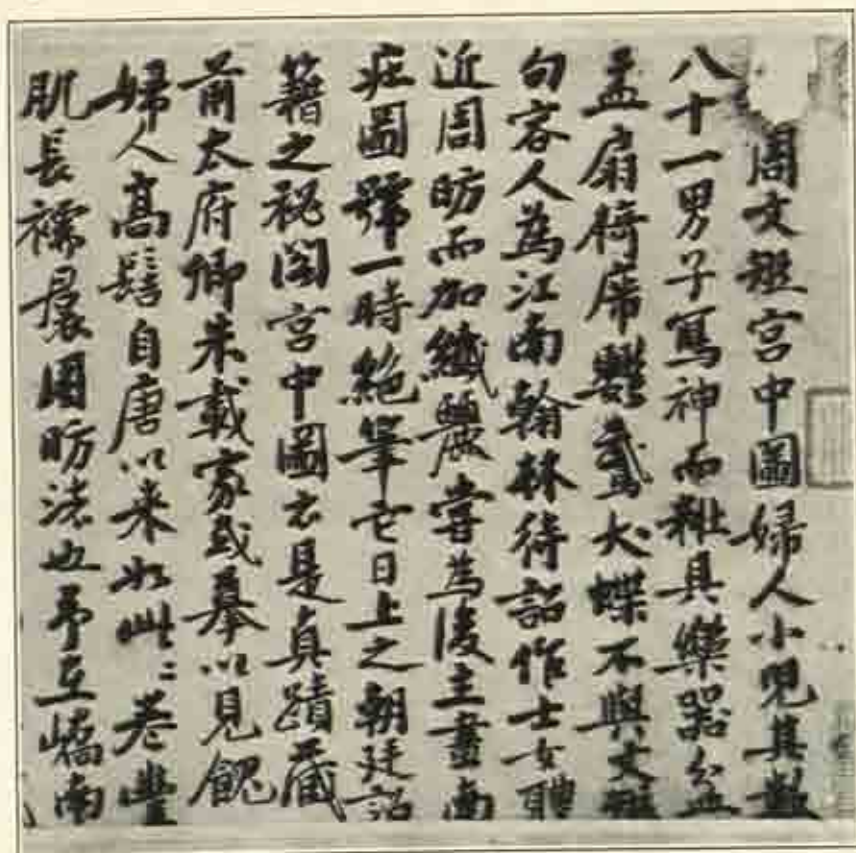 周文矩宮中圖婦人小兒其數
八十一男子寫神而粧具樂器盆
盂扇椅席鸚鵡犬蝶不與文矩
句容人為江南翰林待詔作士女體
近周昉而加纖麗嘗為後主畫南
莊圖號一時絕筆它日上之朝廷詔
籍之祕閣宮中圖云是真蹟藏
前太府卿朱載家或摹以見餽
婦人高髻自唐以来如此〻卷豐
肌長襦裠周昉法也予在嶠南